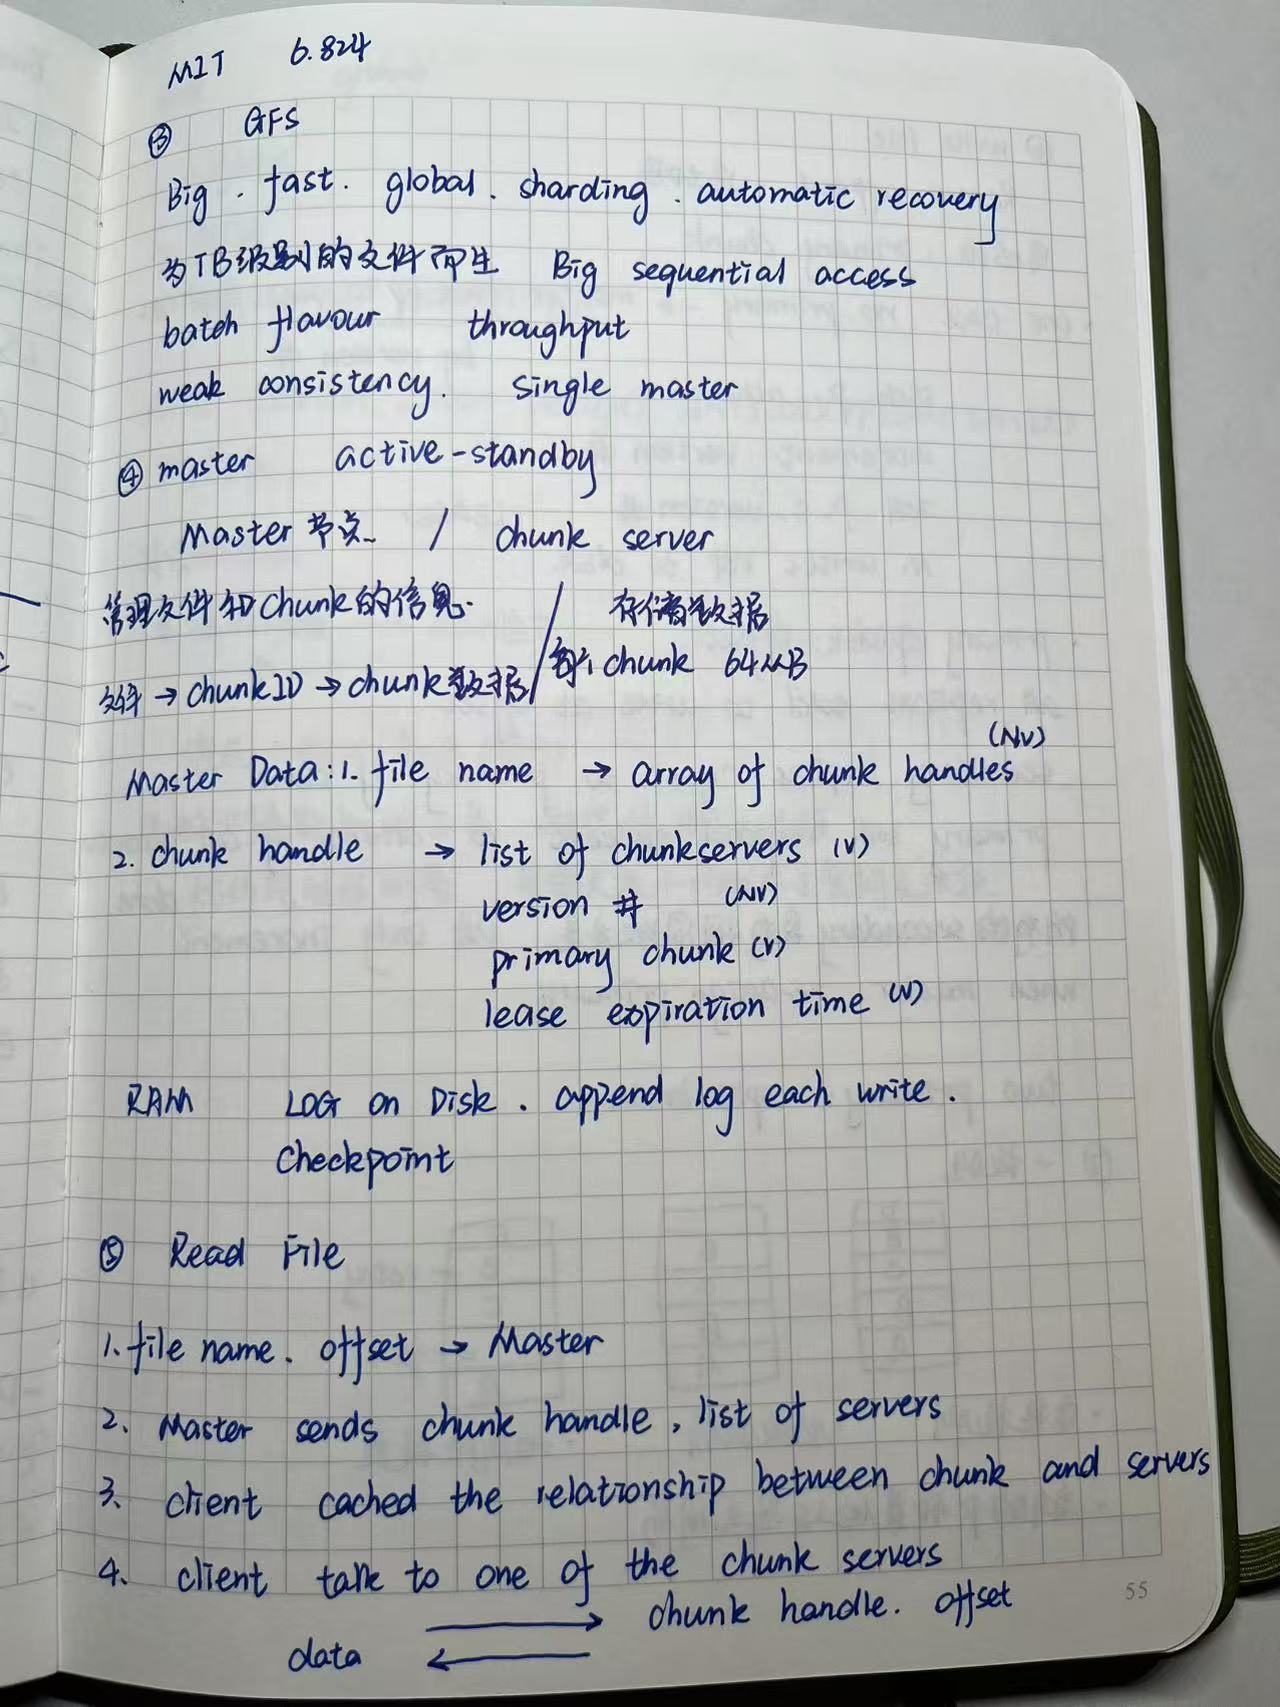 MIT 6.824
③ GFS
Big . fast . global . sharding . automatic recovery
为TB级别的文件而生 Big sequential access
batch flavour throughput
weak consistency. single master
④ master active-standby
Master 节点 / chunk server
管理文件和chunk的信息. / 存储数据
文件 → chunk ID → chunk数据 / 每个 chunk 64MB
(NV)
Master Data: 1. file name → array of chunk handles
2. chunk handle → list of chunkservers (V)
version # (NV)
primary chunk (V)
lease expiration time (V)
RAM LOG on Disk . append log each write .
Checkpoint
⑤ Read File
1. file name . offset → Master
2. Master sends chunk handle , list of servers
3. client cached the relationship between chunk and servers
4. client talk to one of the chunk servers
→ chunk handle . offset
data ←
55